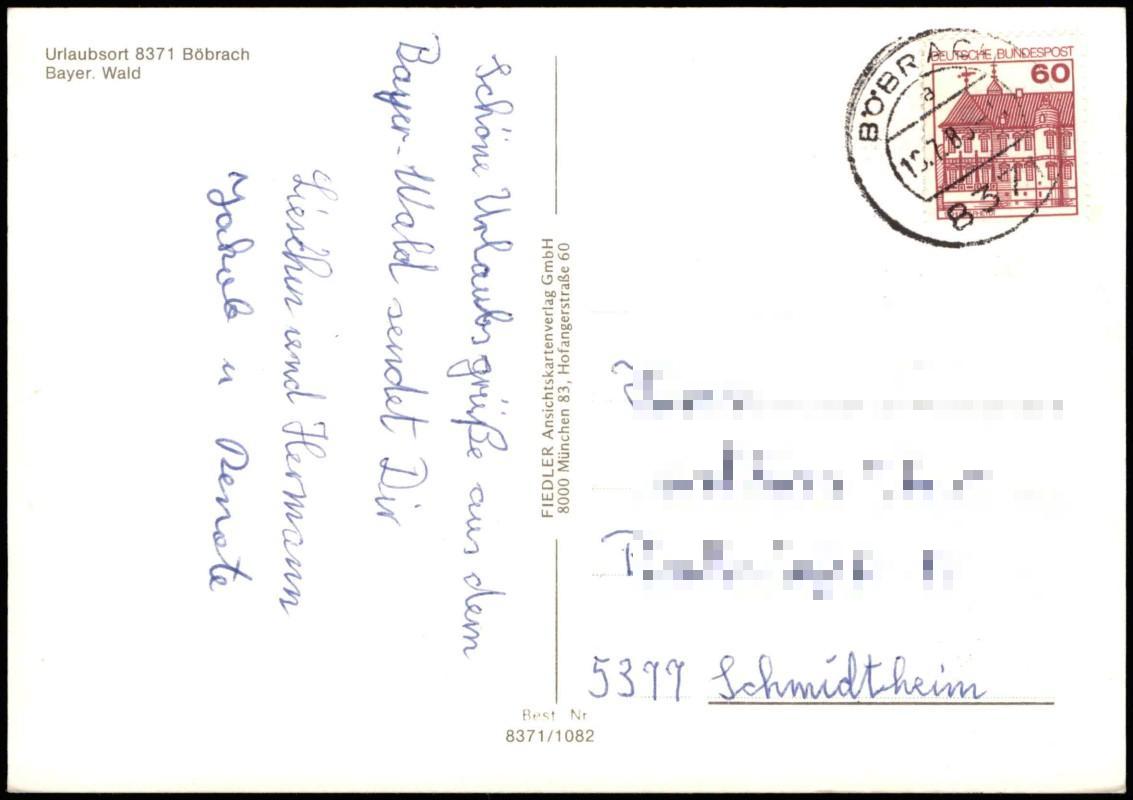 Urlaubsort 8371 Böbrach
Bayer. Wald
Schöne Urlaubsgrüße aus dem
Bayer-Wald sendet Dir
Lieschen und Hermann
Jakob u Renate
FIEDLER Ansichtskartenverlag GmbH
8000 München 83, Hofangerstraße 60
Best Nr
8371/1082
DEUTSCHE BUNDESPOST
60
BÖBRAC
a
837
5377 Schmidtheim